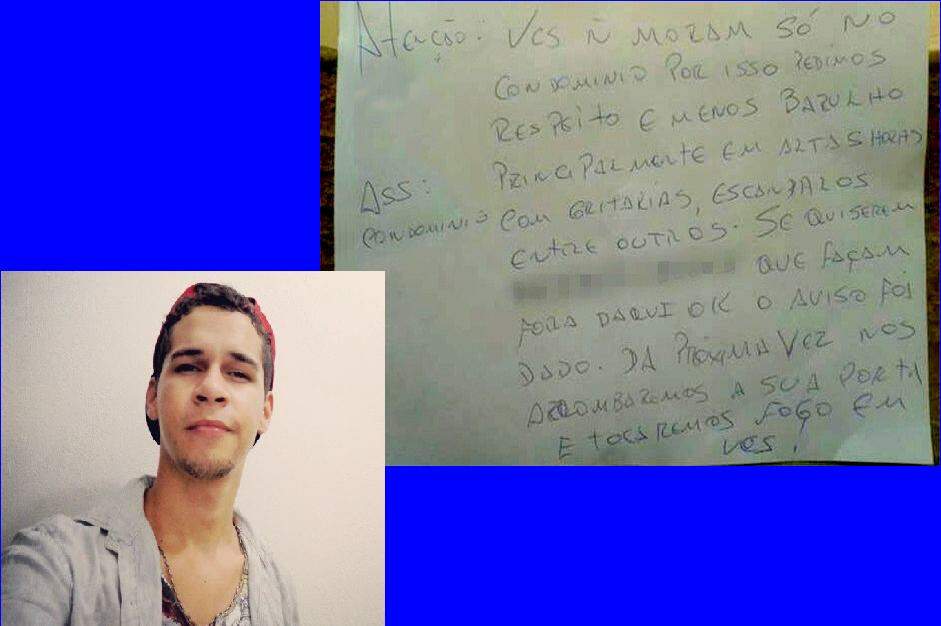 Atenção: VCS Ñ MORAM SÓ NO
CONDOMINIO POR ISSO PEDIMOS
RESPEITO E MENOS BARULHO
PRINCIPALMENTE EM ALTAS HORAS
COM GRITARIAS, ESCANDALOS
ENTRE OUTROS. SE QUISEREM
QUE FAÇAM
FORA DAQUI OK O AVISO FOI
DADO. DA PRÓXIMA VEZ NOS
ARROMBAREMOS A SUA PORTA
E TOCAREMOS FOGO EM
VCES!
ASS:
CONDOMINIO